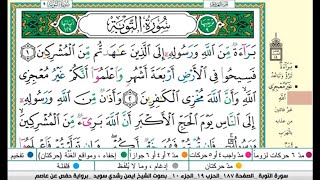 سُورَةُ التَّوْبَةِ
بَرَآءَةٌ مِّنَ ٱللَّهِ وَرَسُولِهِۦٓ إِلَى ٱلَّذِينَ عَٰهَدتُّم مِّنَ ٱلْمُشْرِكِينَ ١
فَسِيحُوا۟ فِى ٱلْأَرْضِ أَرْبَعَةَ أَشْهُرٍ وَٱعْلَمُوٓا۟ أَنَّكُمْ غَيْرُ مُعْجِزِى
ٱللَّهِ وَأَنَّ ٱللَّهَ مُخْزِى ٱلْكَٰفِرِينَ ٢ وَأَذَٰنٌ مِّنَ ٱللَّهِ وَرَسُولِهِۦٓ
إِلَى ٱلنَّاسِ يَوْمَ ٱلْحَجِّ ٱلْأَكْبَرِ أَنَّ ٱللَّهَ بَرِىٓءٌ مِّنَ ٱلْمُشْرِكِينَ
براءة
غير معجزي
الله
مد ٦ حركات لزوماً
مد ٢ أو ٤ أو ٦ جوازاً
إخفاء، ومواقع الغنة (حركتان)
تفخيم
مد حركتان
إدغام، وما لا يلفظ
سورة التوبة الصفحة ١٨٧ الحزب ١٩ الجزء ١٠ بصوت الشيخ ايمن رشدي سويد برواية حفص عن عاصم